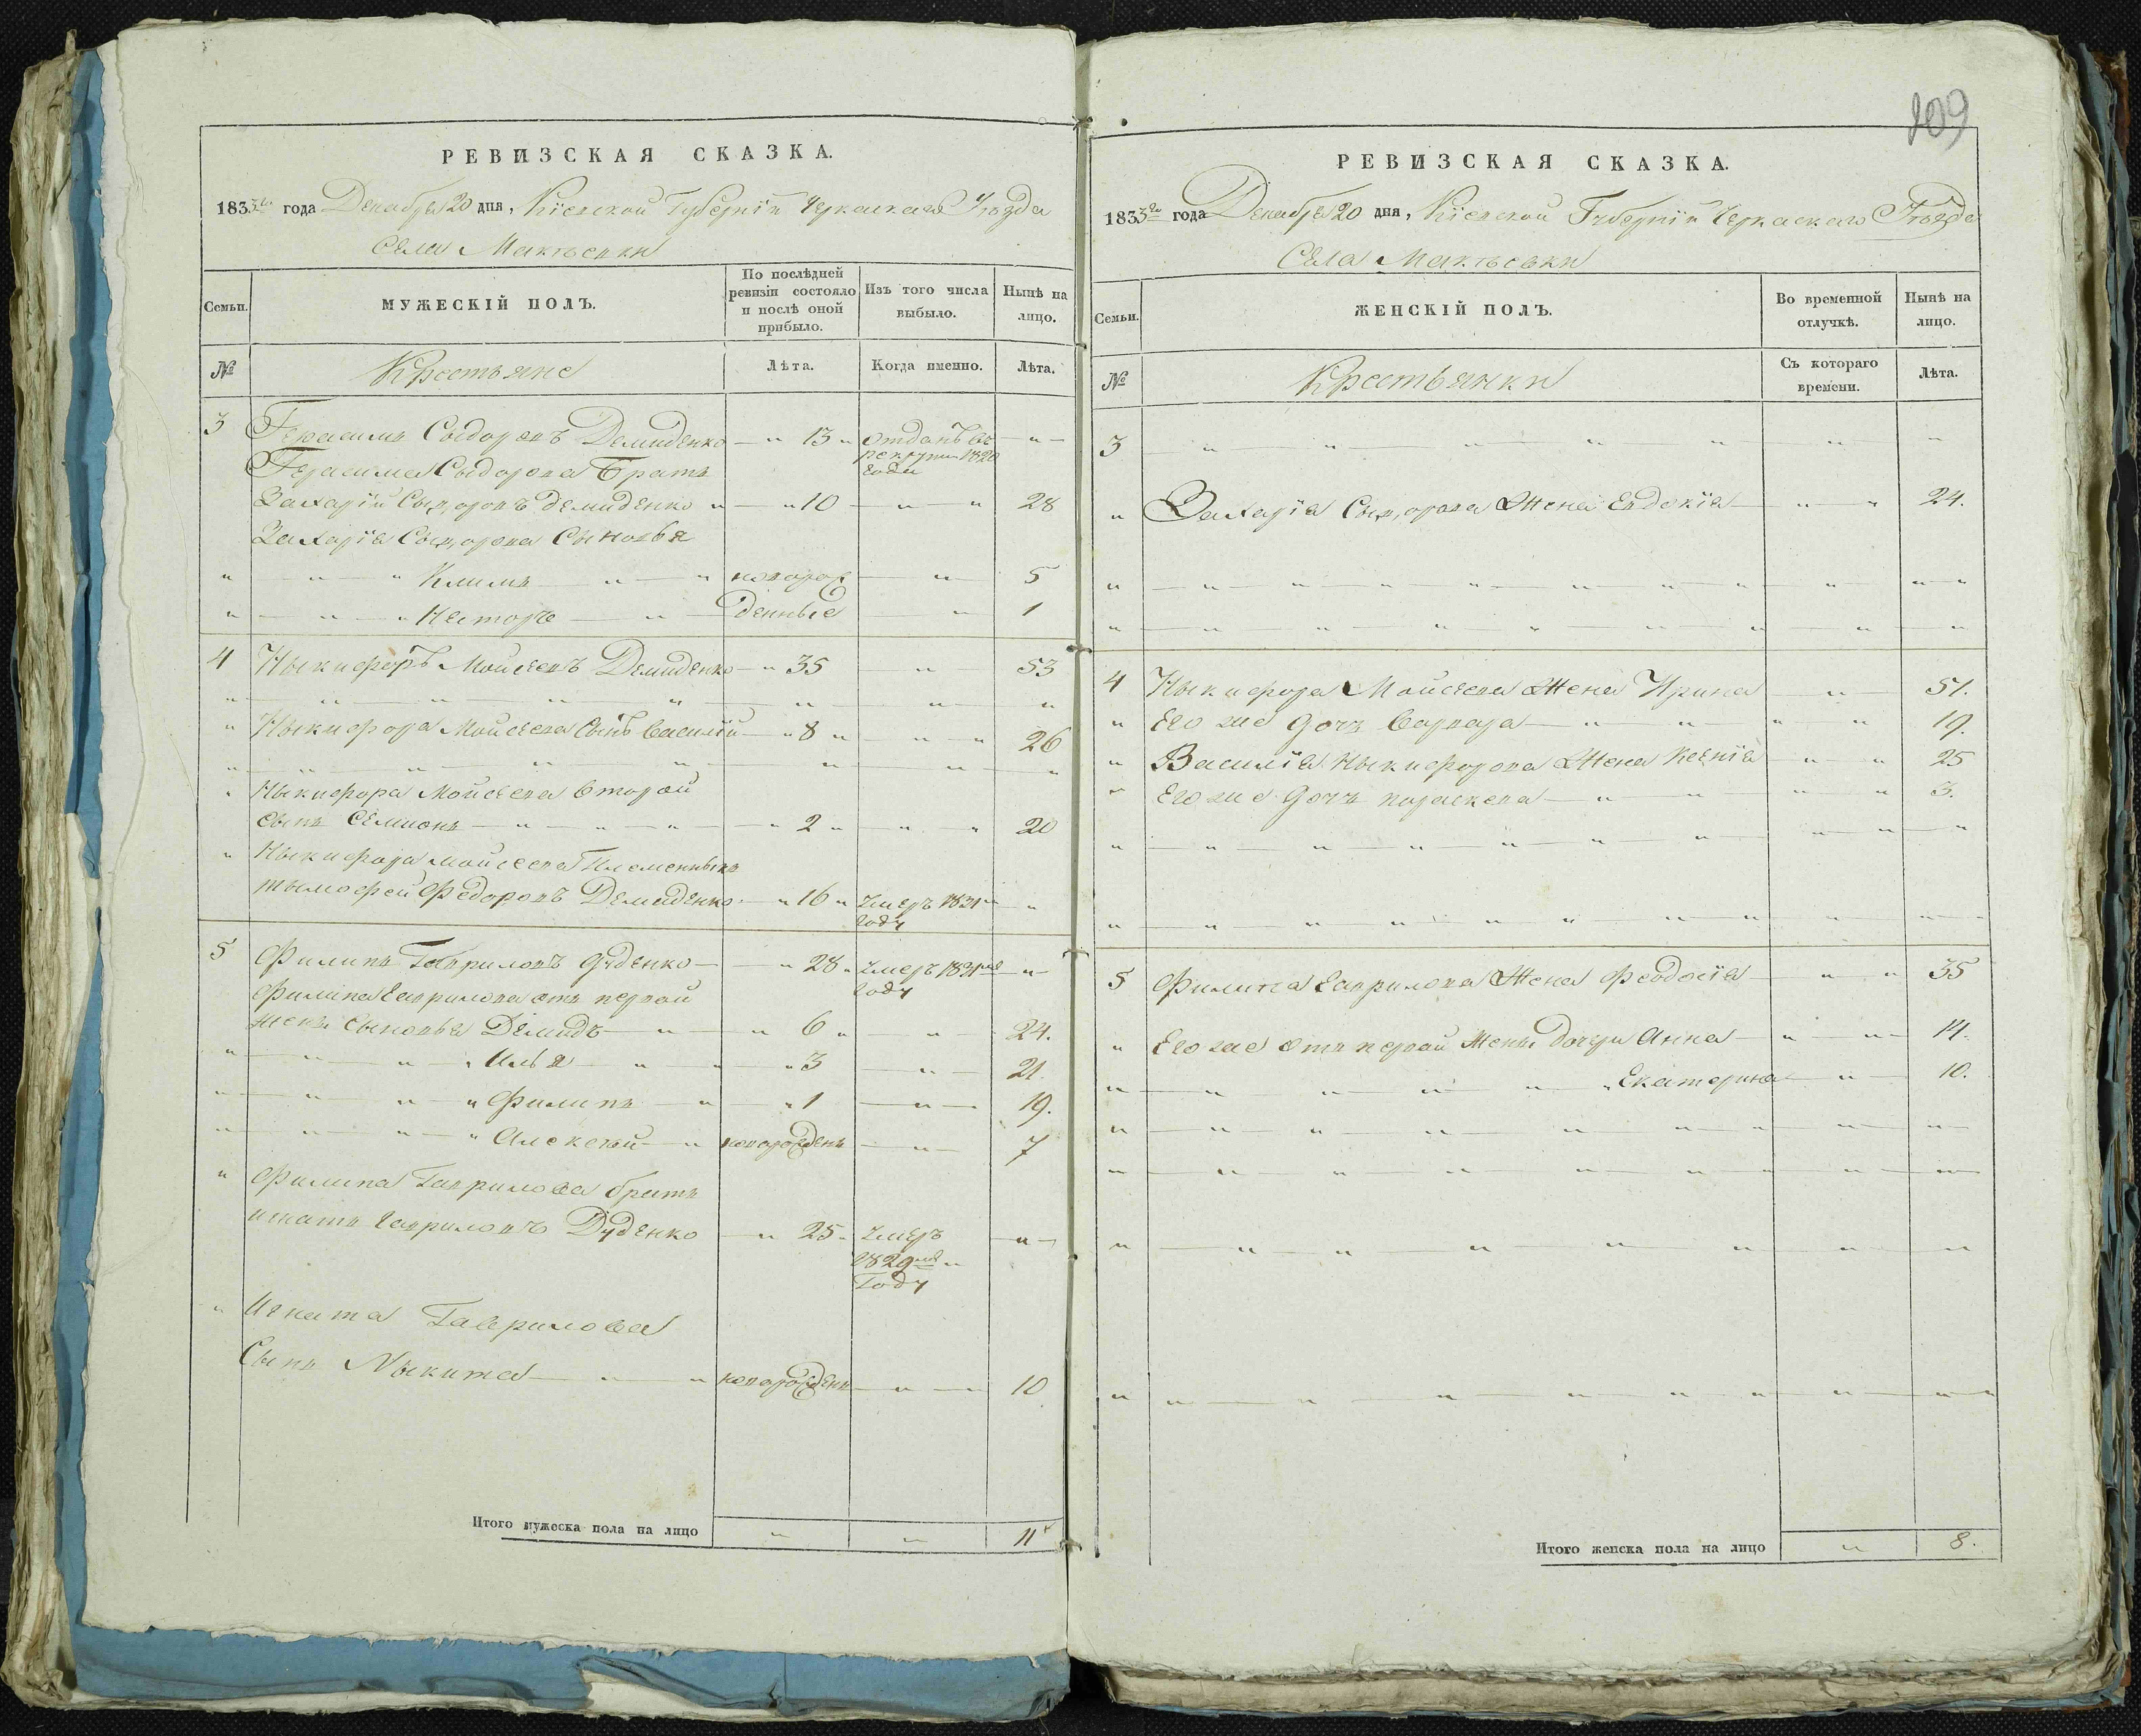 РЕВИЗСКАЯ СКАЗКА.
1833го года Декабря 20 дня, Кіевской Губерніи Черкаскаго Уѣзда
Села Макѣевки
Семьи.
МУЖЕСКІЙ ПОЛЪ.
По послѣдней ревизіи состояло и послѣ оной прибыло.
Изъ того числа выбыло.
Нынѣ на лицо.
№
Крестьяне
Лѣта.
Когда именно.
Лѣта.
3 Герасимъ Сыдоровъ Демиденко — " 13 " отданъ въ — " —
Герасима Сыдорова Братъ рекруты 1820
года
Захарій Сыдоровъ Демиденко " — " 10 — " — " 28
Захарія Сыдорова Сыновья
" — " — " Климъ — " — " новорож — " — 5
" — " — " Несторъ — " — денные — " — 1
4 Ныкифоръ Мойсеевъ Демиденко — " 35 — " — 53
" Ныкифора Мойсеева Сынъ Василій — " 8 " — " — " 26
" Ныкифора Мойсеева Второй
сынъ Семионъ — " — " — " — " 2 " — " — " 20
" Ныкифора Мойсеева Племенныкъ
Тымофей Федоровъ Демиденко — " 16 " Умеръ 1831 "
году
5 Филипъ Гавриловъ Дуденко — " 28 " Умеръ 1831го — " —
году
Филипа Гаврилова отъ первой
жены Сыновья Демидъ — " — " 6 " — " — 24.
" — " — " — " Илья — " — " " 3 — " — 21.
" — " — " — " Филипъ — " — " 1 — " — 19.
" — " — " — " Алексѣй — " новорожденъ — " — 7
" Филипа Гаврилова братъ
Игнатъ Гавриловъ Дуденко — " 25 " Умеръ — " —
1829го "
Году
" Игната Гаврилова
Сынъ Мыкита — " — " новорожденъ — " — 10
Итого мужеска пола на лицо " " 11
109
РЕВИЗСКАЯ СКАЗКА.
1833го года Декабря 20 дня, Кіевской Губерніи Черкаскаго Уѣзда
Села Макѣевки
Семьи.
ЖЕНСКІЙ ПОЛЪ.
Во временной отлучкѣ.
Нынѣ на лицо.
№
Крестьянки
Съ котораго времени.
Лѣта.
3 " — " — " — " — " — " — "
" Захарія Сыдорова Жена Евдокія — " — " 24.
4 Ныкифора Мойсеева Жена Ирина — " — 51.
" Его же дочь Варвара — " — " — " — " 19.
" Василія Ныкифорова Жена Ксенія — " — " 25
" Его же дочь Параскева — " — " — " — " 3.
5 Филипа Гаврилова Жена Феодосія — " — " 35
" Его же отъ первой жены дочери Анна — " — " — 14.
" — " — " — " — " — " Екатерина — " — 10.
Итого женска пола на лицо " 8.